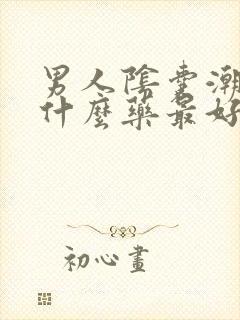 男人陰囊潮
什麼藥最好
初心畫